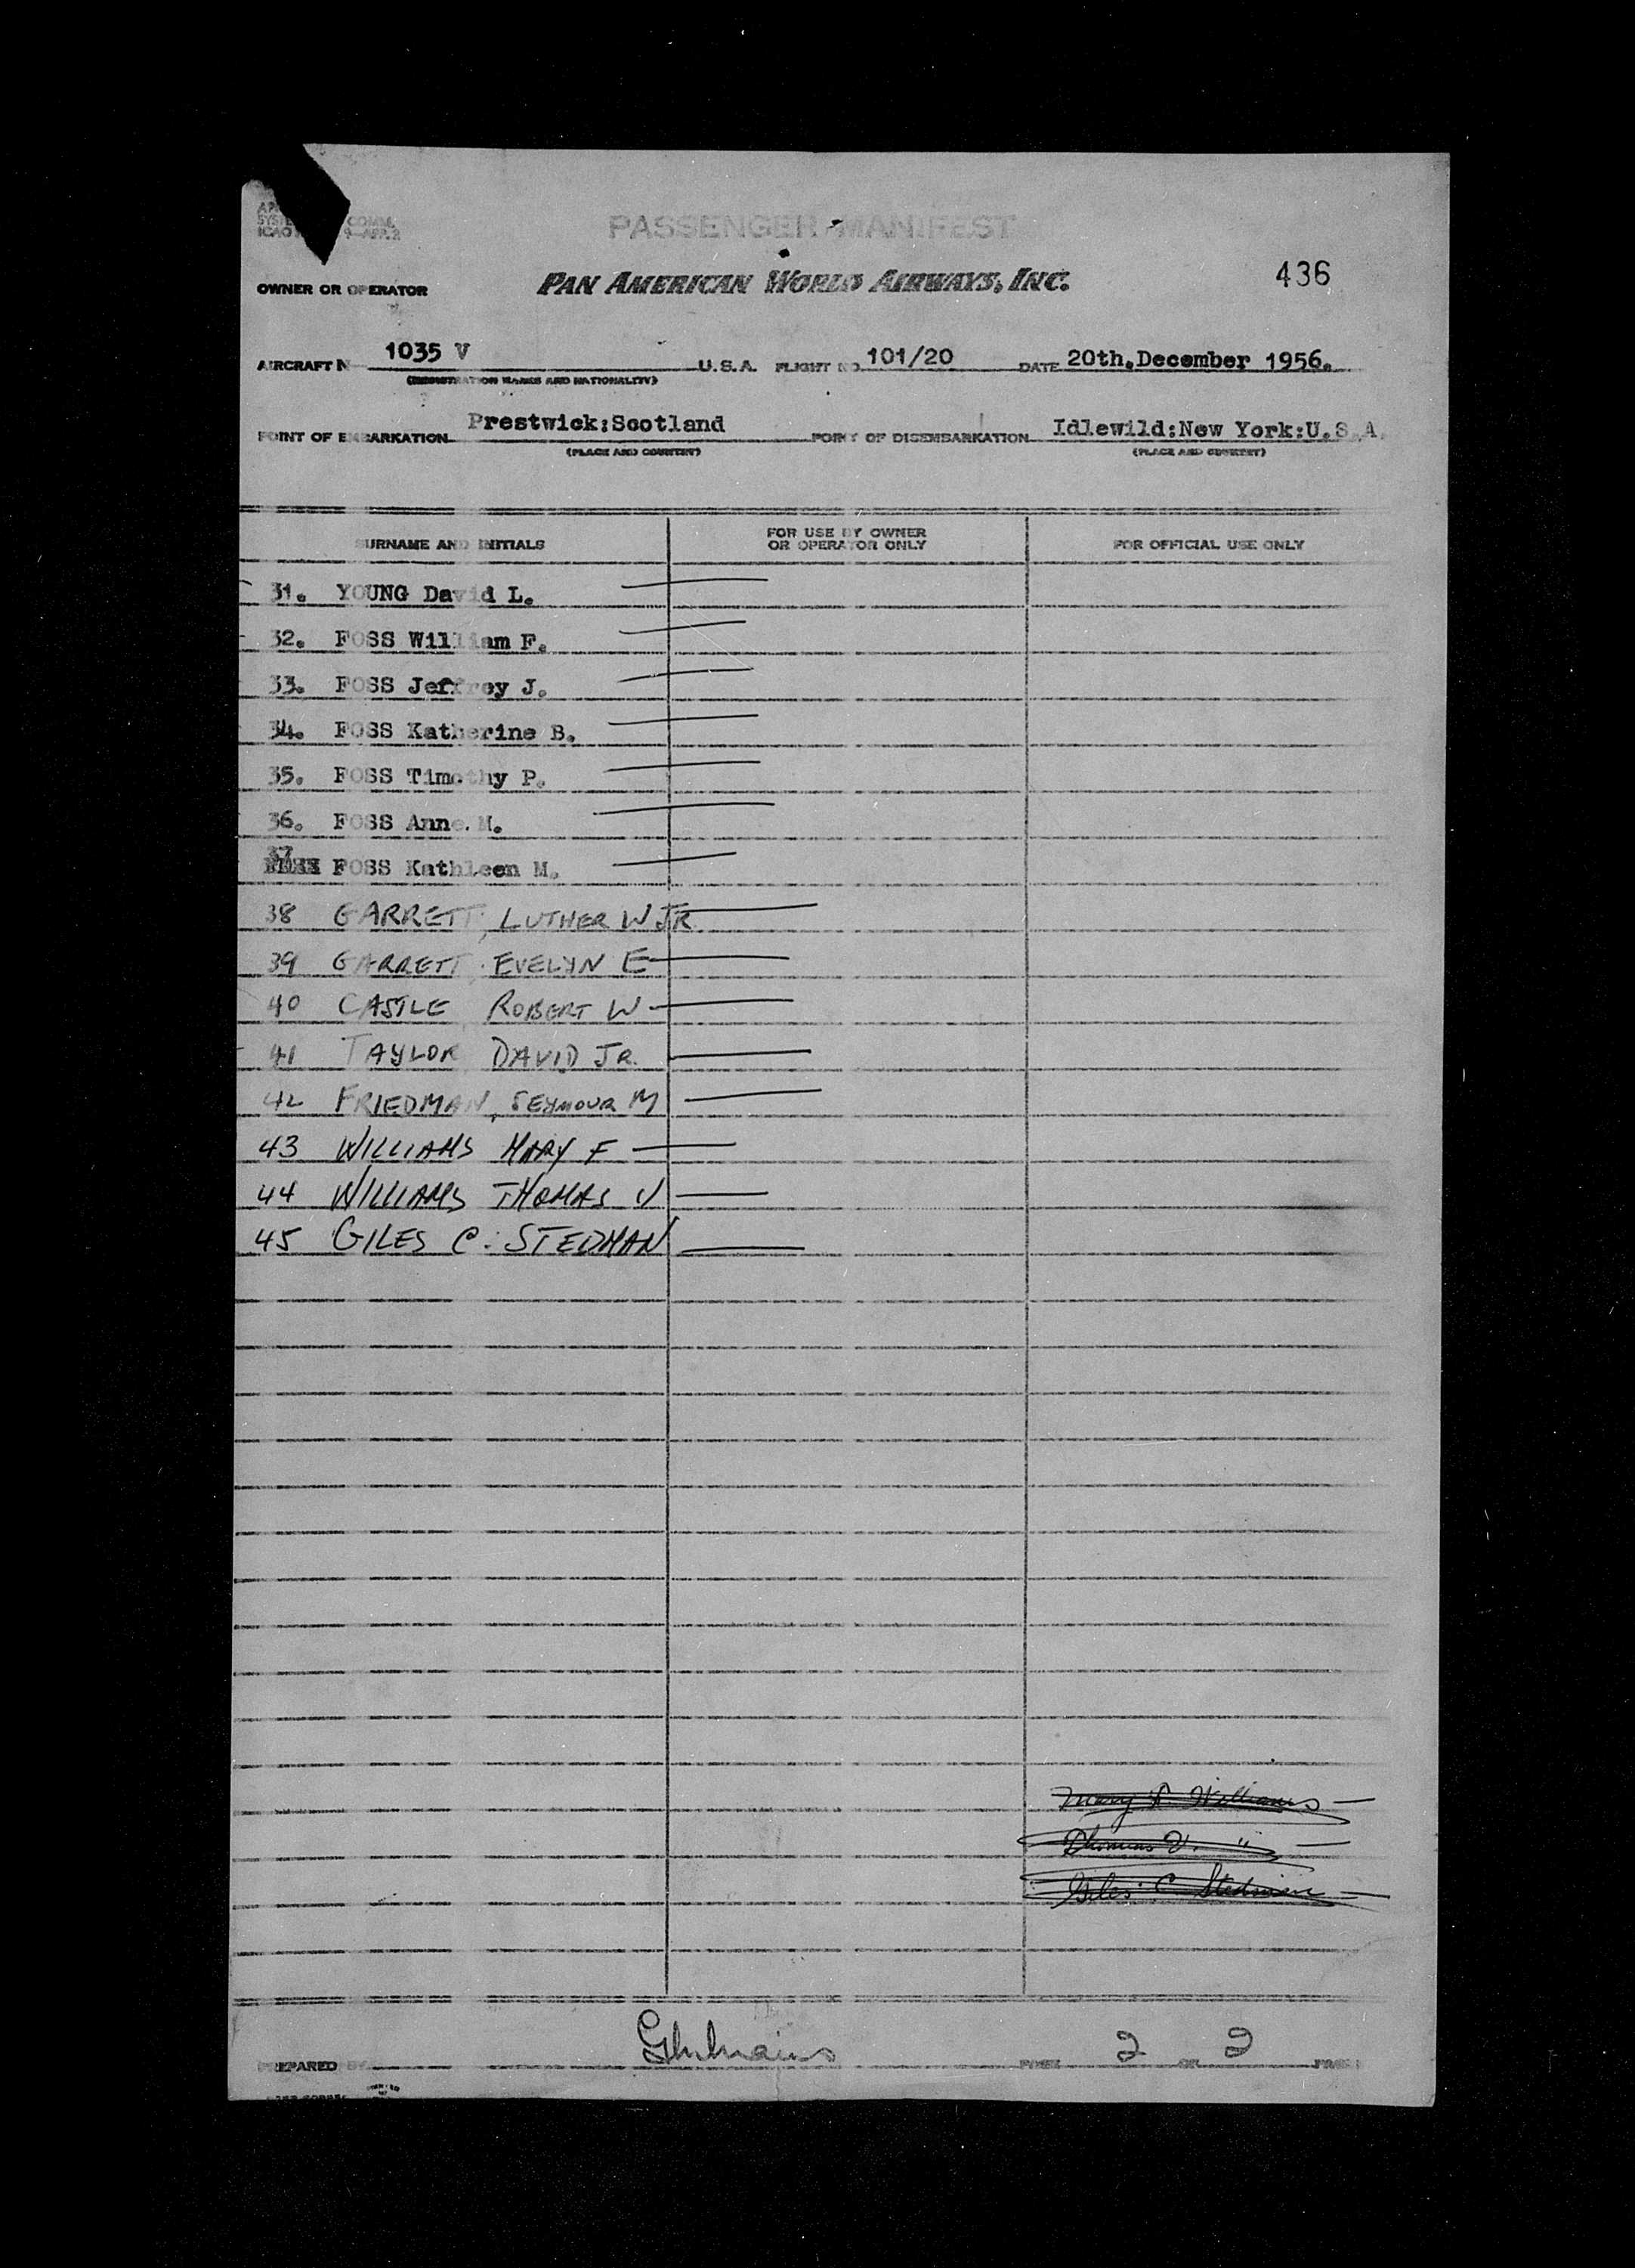 COMM.
PASSENGER MANIFEST
OWNER OR OPERATOR PAN AMERICAN WORLD AIRWAYS, INC. 436
AIRCRAFT N 1035 V U.S.A. FLIGHT NO. 101/20 DATE 20th.December 1956.
(REGISTRATION MARKS AND NATIONALITY)
POINT OF EMBARKATION Prestwick:Scotland POINT OF DISEMBARKATION Idlewild:New York:U.S.A.
(PLACE AND COUNTRY) (PLACE AND COUNTRY)
SURNAME AND INITIALS FOR USE BY OWNER OR OPERATOR ONLY FOR OFFICIAL USE ONLY
31. YOUNG David L.
32. FOSS William F.
33. FOSS Jeffrey J.
34. FOSS Katherine B.
35. FOSS Timothy P.
36. FOSS Anne.M.
37 FOSS Kathleen M.
38 GARRETT, LUTHER W JR
39 GARRETT EVELYN E
40 CASTLE ROBERT W
41 TAYLOR DAVID JR.
42 FRIEDMAN, SEYMOUR M
43 WILLIAMS MARY F
44 WILLIAMS THOMAS V
45 GILES C. STEDMAN
Mary F. Williams
Thomas V. "
Giles C Stedman
PREPARED BY PAGE 2 OF 2 PAGES